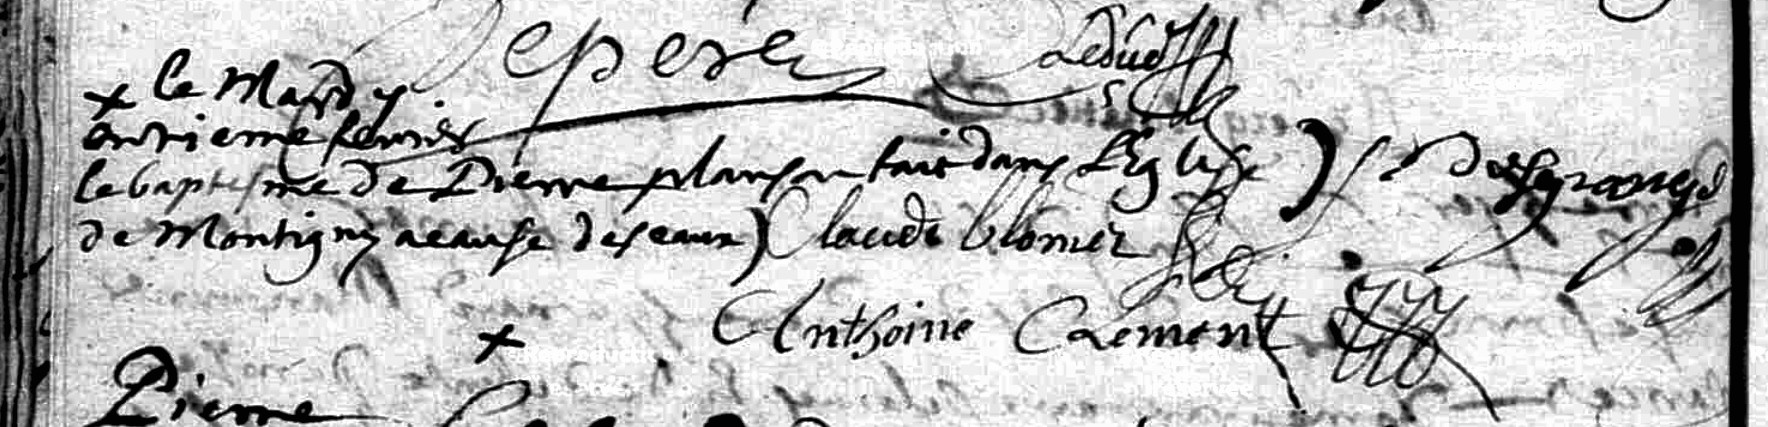 Lepere Leduc
+ le Mardy
onzieme fevrier
le baptesme de Pierre plançon fait dans l'Eglise
de Montigny acause des eaux) Claude blomez
Anthoine Clement
+
Pierre